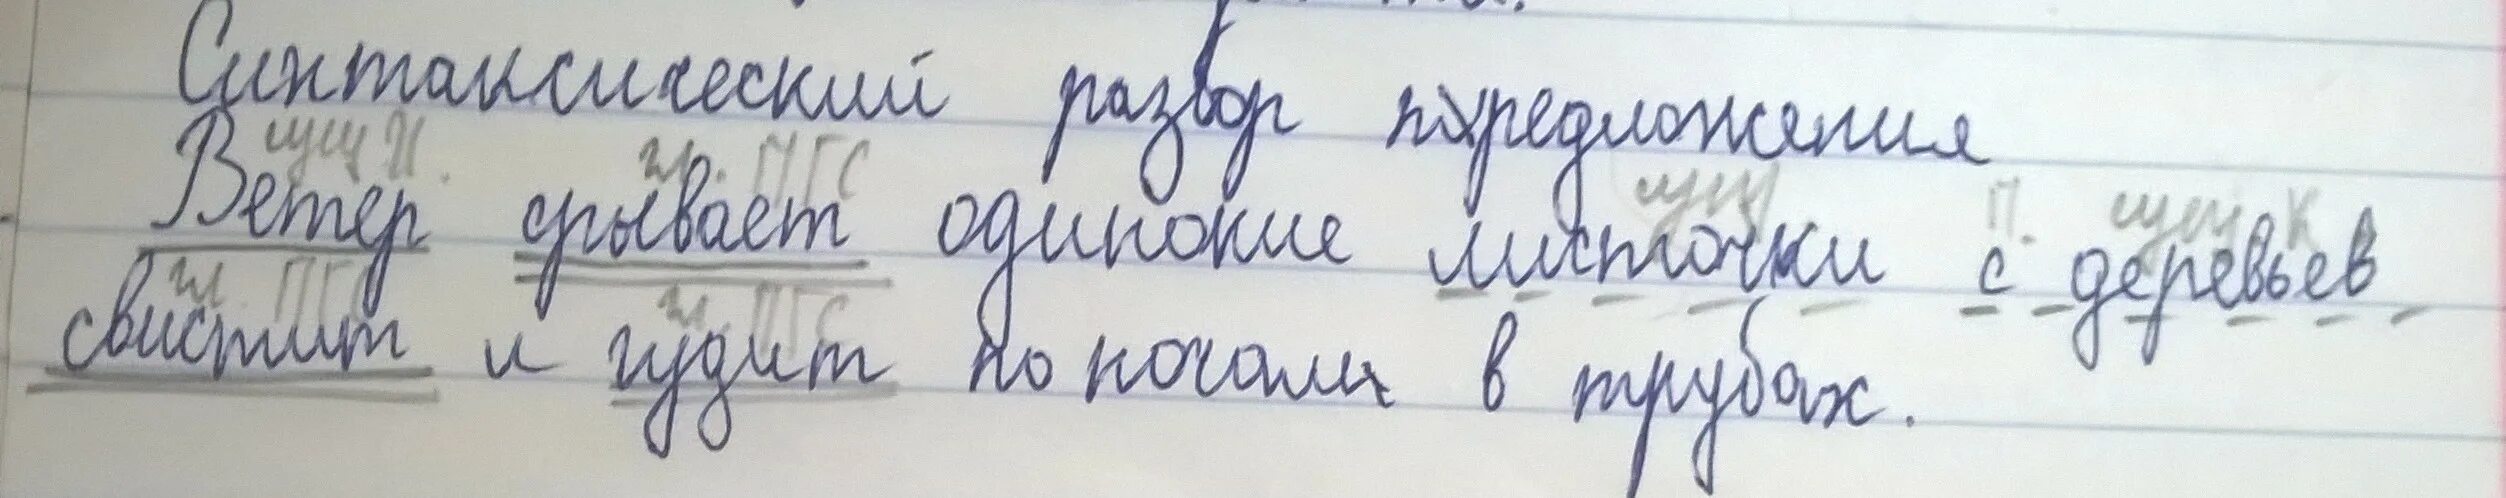 Синтаксический разбор предложения
сущ И. гл. ПГС сущ П. сущ К
Ветер срывает одинокие листочки с деревьев
гл. ПГС гл. ПГС
свистит и гудит по ночам в трубах.